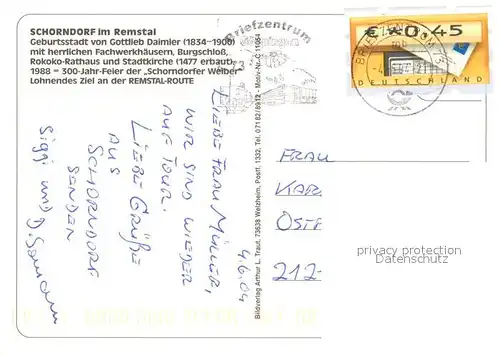 SCHORNDORF im Remstal
Geburtsstadt von Gottlieb Daimler (1834–1900)
mit herrlichen Fachwerkhäusern, Burgschloß,
Rokoko-Rathaus und Stadtkirche (1477 erbaut)
1988 = 300-Jahr-Feier der „Schorndorfer Weiber"
Lohnendes Ziel an der REMSTAL-ROUTE
Briefzentrum
€ 0,45
DEUTSCHLAND
BRIEFZENTRUM
4.6.04
LIEBE FRAU MÜLLER,
WIR SIND WIEDER
AUF TOUR.
LIEBE GRÜßE
AUS
SCHORNDORF
SENDEN
Siggi und
Bildverlag Arthur L. Traut, 73638 Welzheim, Postf. 1332, Tel. 07182/8912 - Motiv-Nr. C 11064
FRAU
KAR
OSTE
212-
privacy protection
Datenschutz